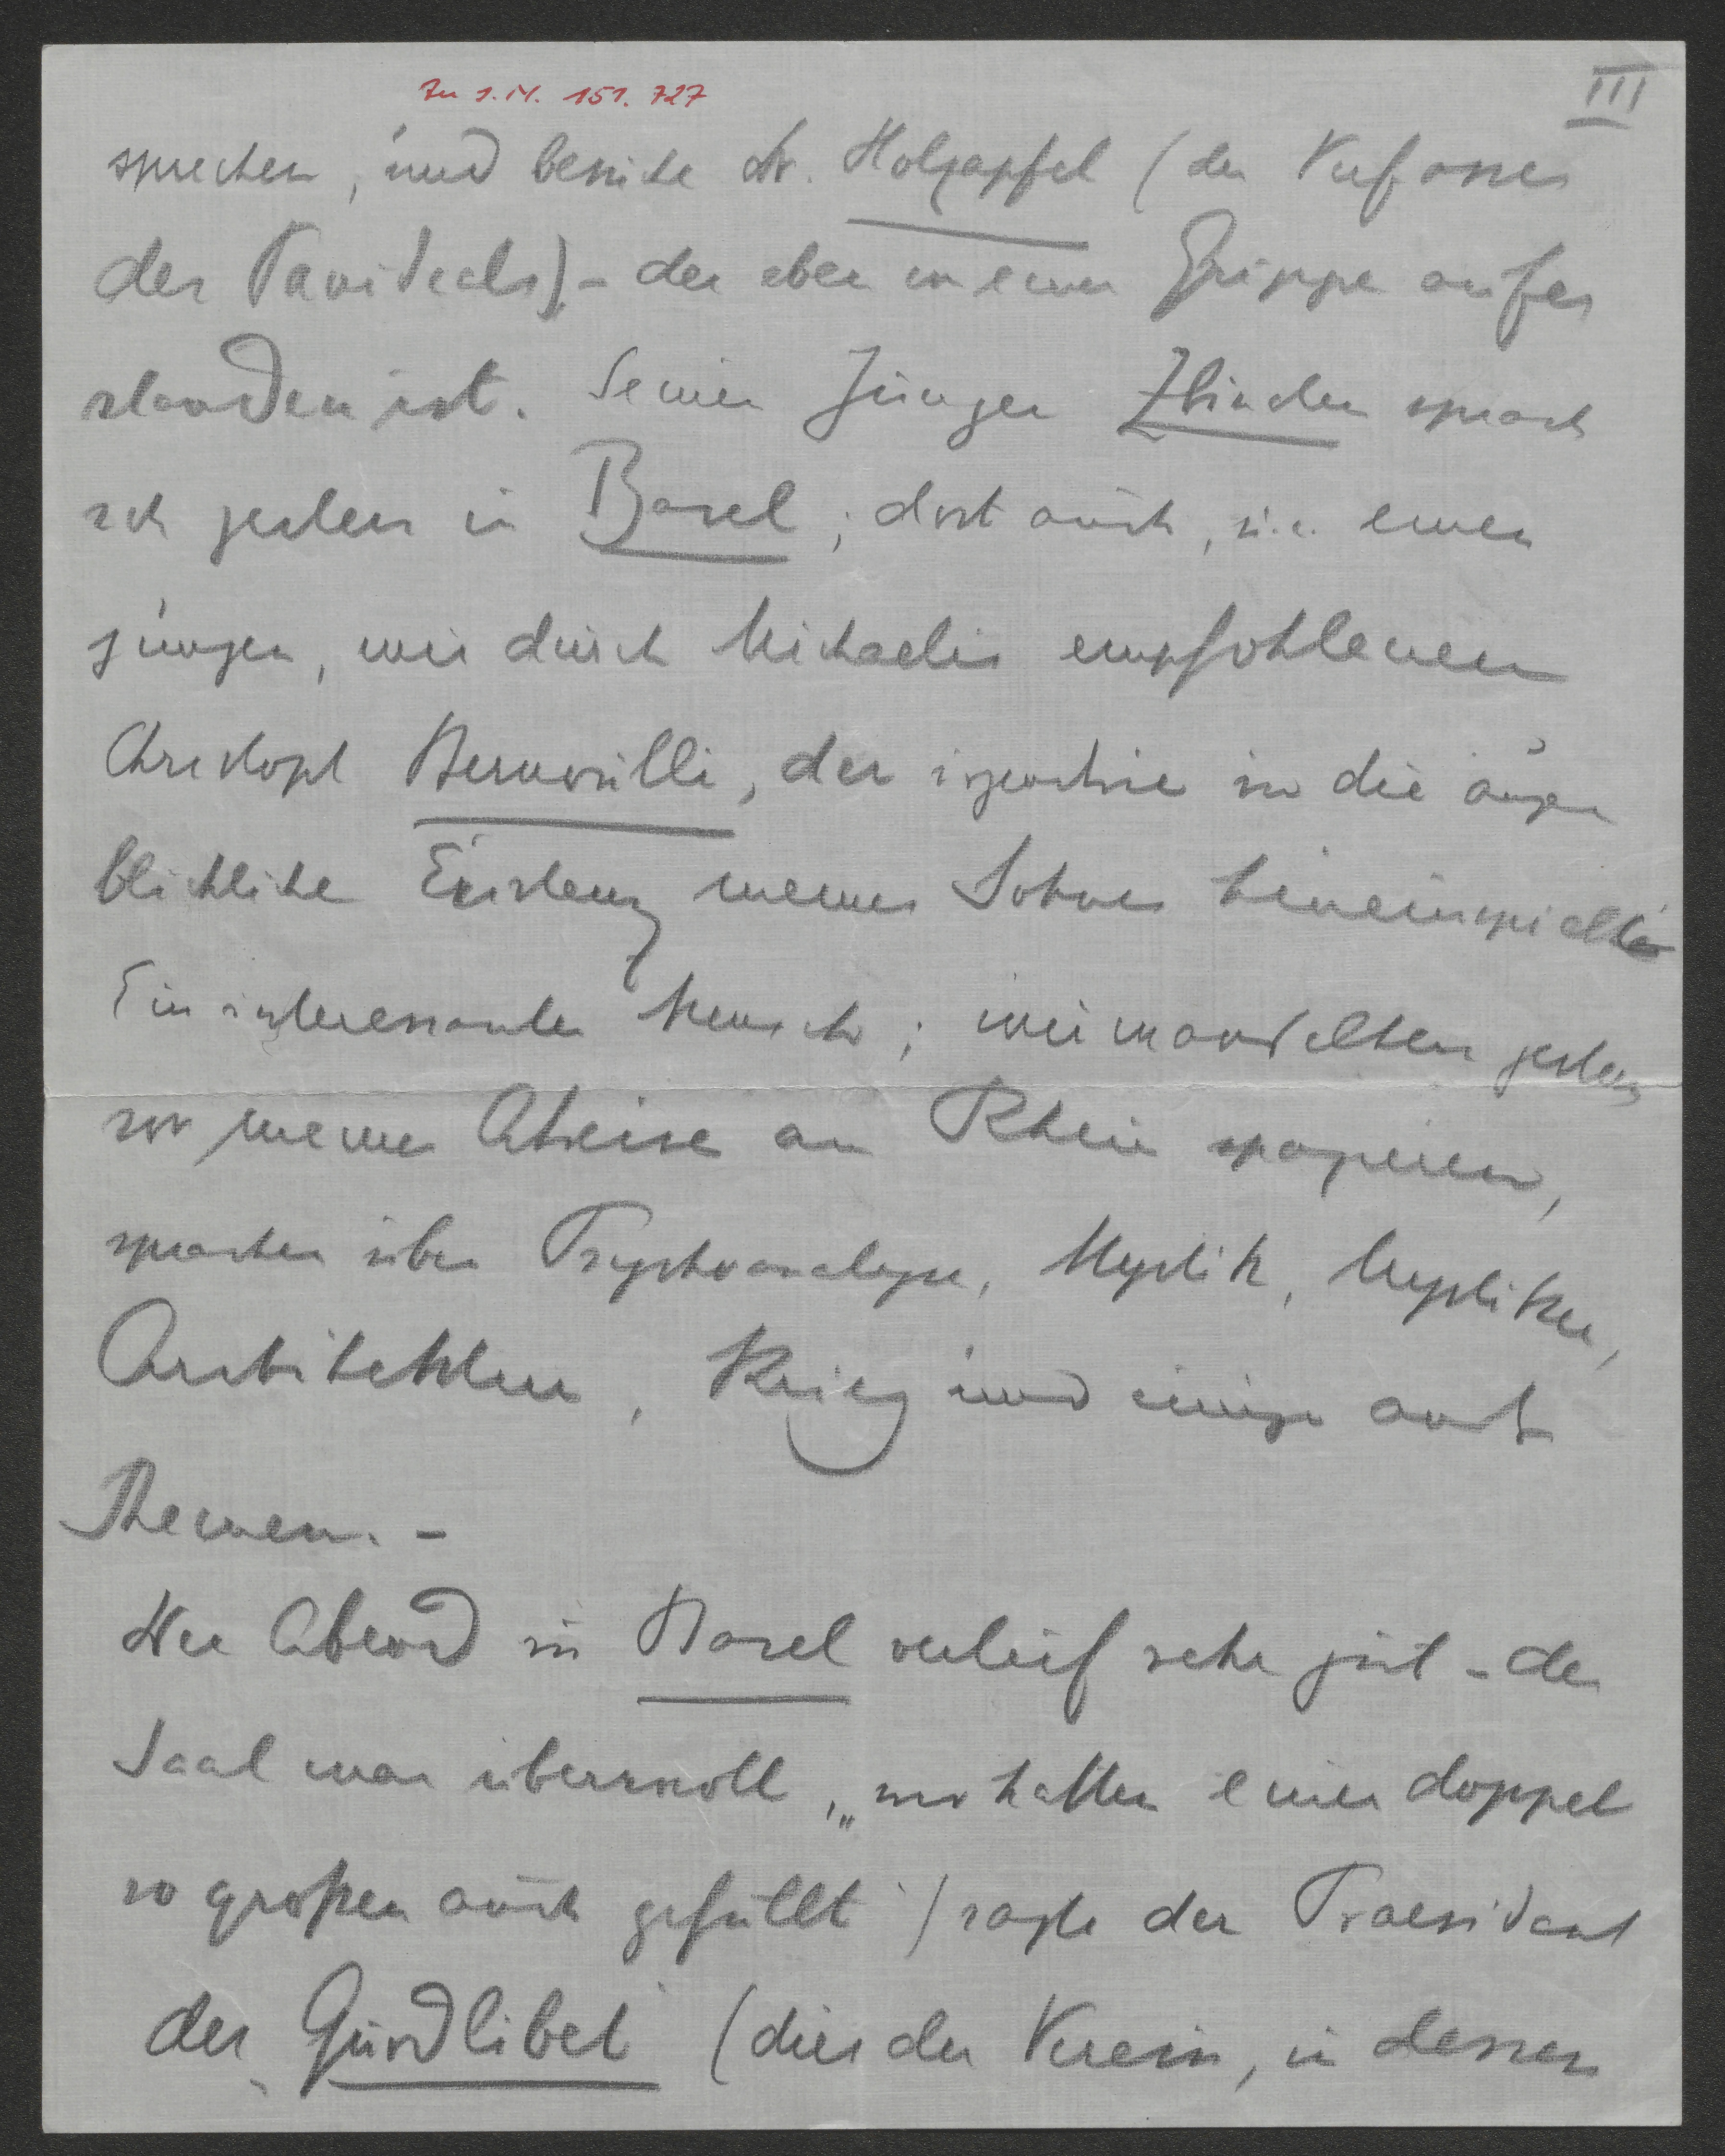 Zu I.N. 151.727
III
sprechen, und besuche Dr. Holzapfel (den Verfasser
des Panideals) - der eben von einer Grippe aufer
standen ist. Seinen Jünger Zbinden sprach
ich gestern in Basel; dort auch, u.a. einen
jungen, mir durch Michaelis empfohlenen
Christoph Bernoulli, der irgendwie in die augen
blickliche Existenz meines Sohnes hineinspielt
Ein interessanter Mensch; wir wandelten gestern
vor meiner Abreise am Rhein spazieren,
sprachen über Psychoanalyse, Mystik, Mystiker,
Architektur, Krieg und einige andr
Themen. -
Der Abend in Basel verlief sehr gut - der
Saal war übervoll, „wir hätten einen doppel
so großen auch gefüllt" sagte der Praesident
des „Quodlibet" (dies der Verein, in dessen